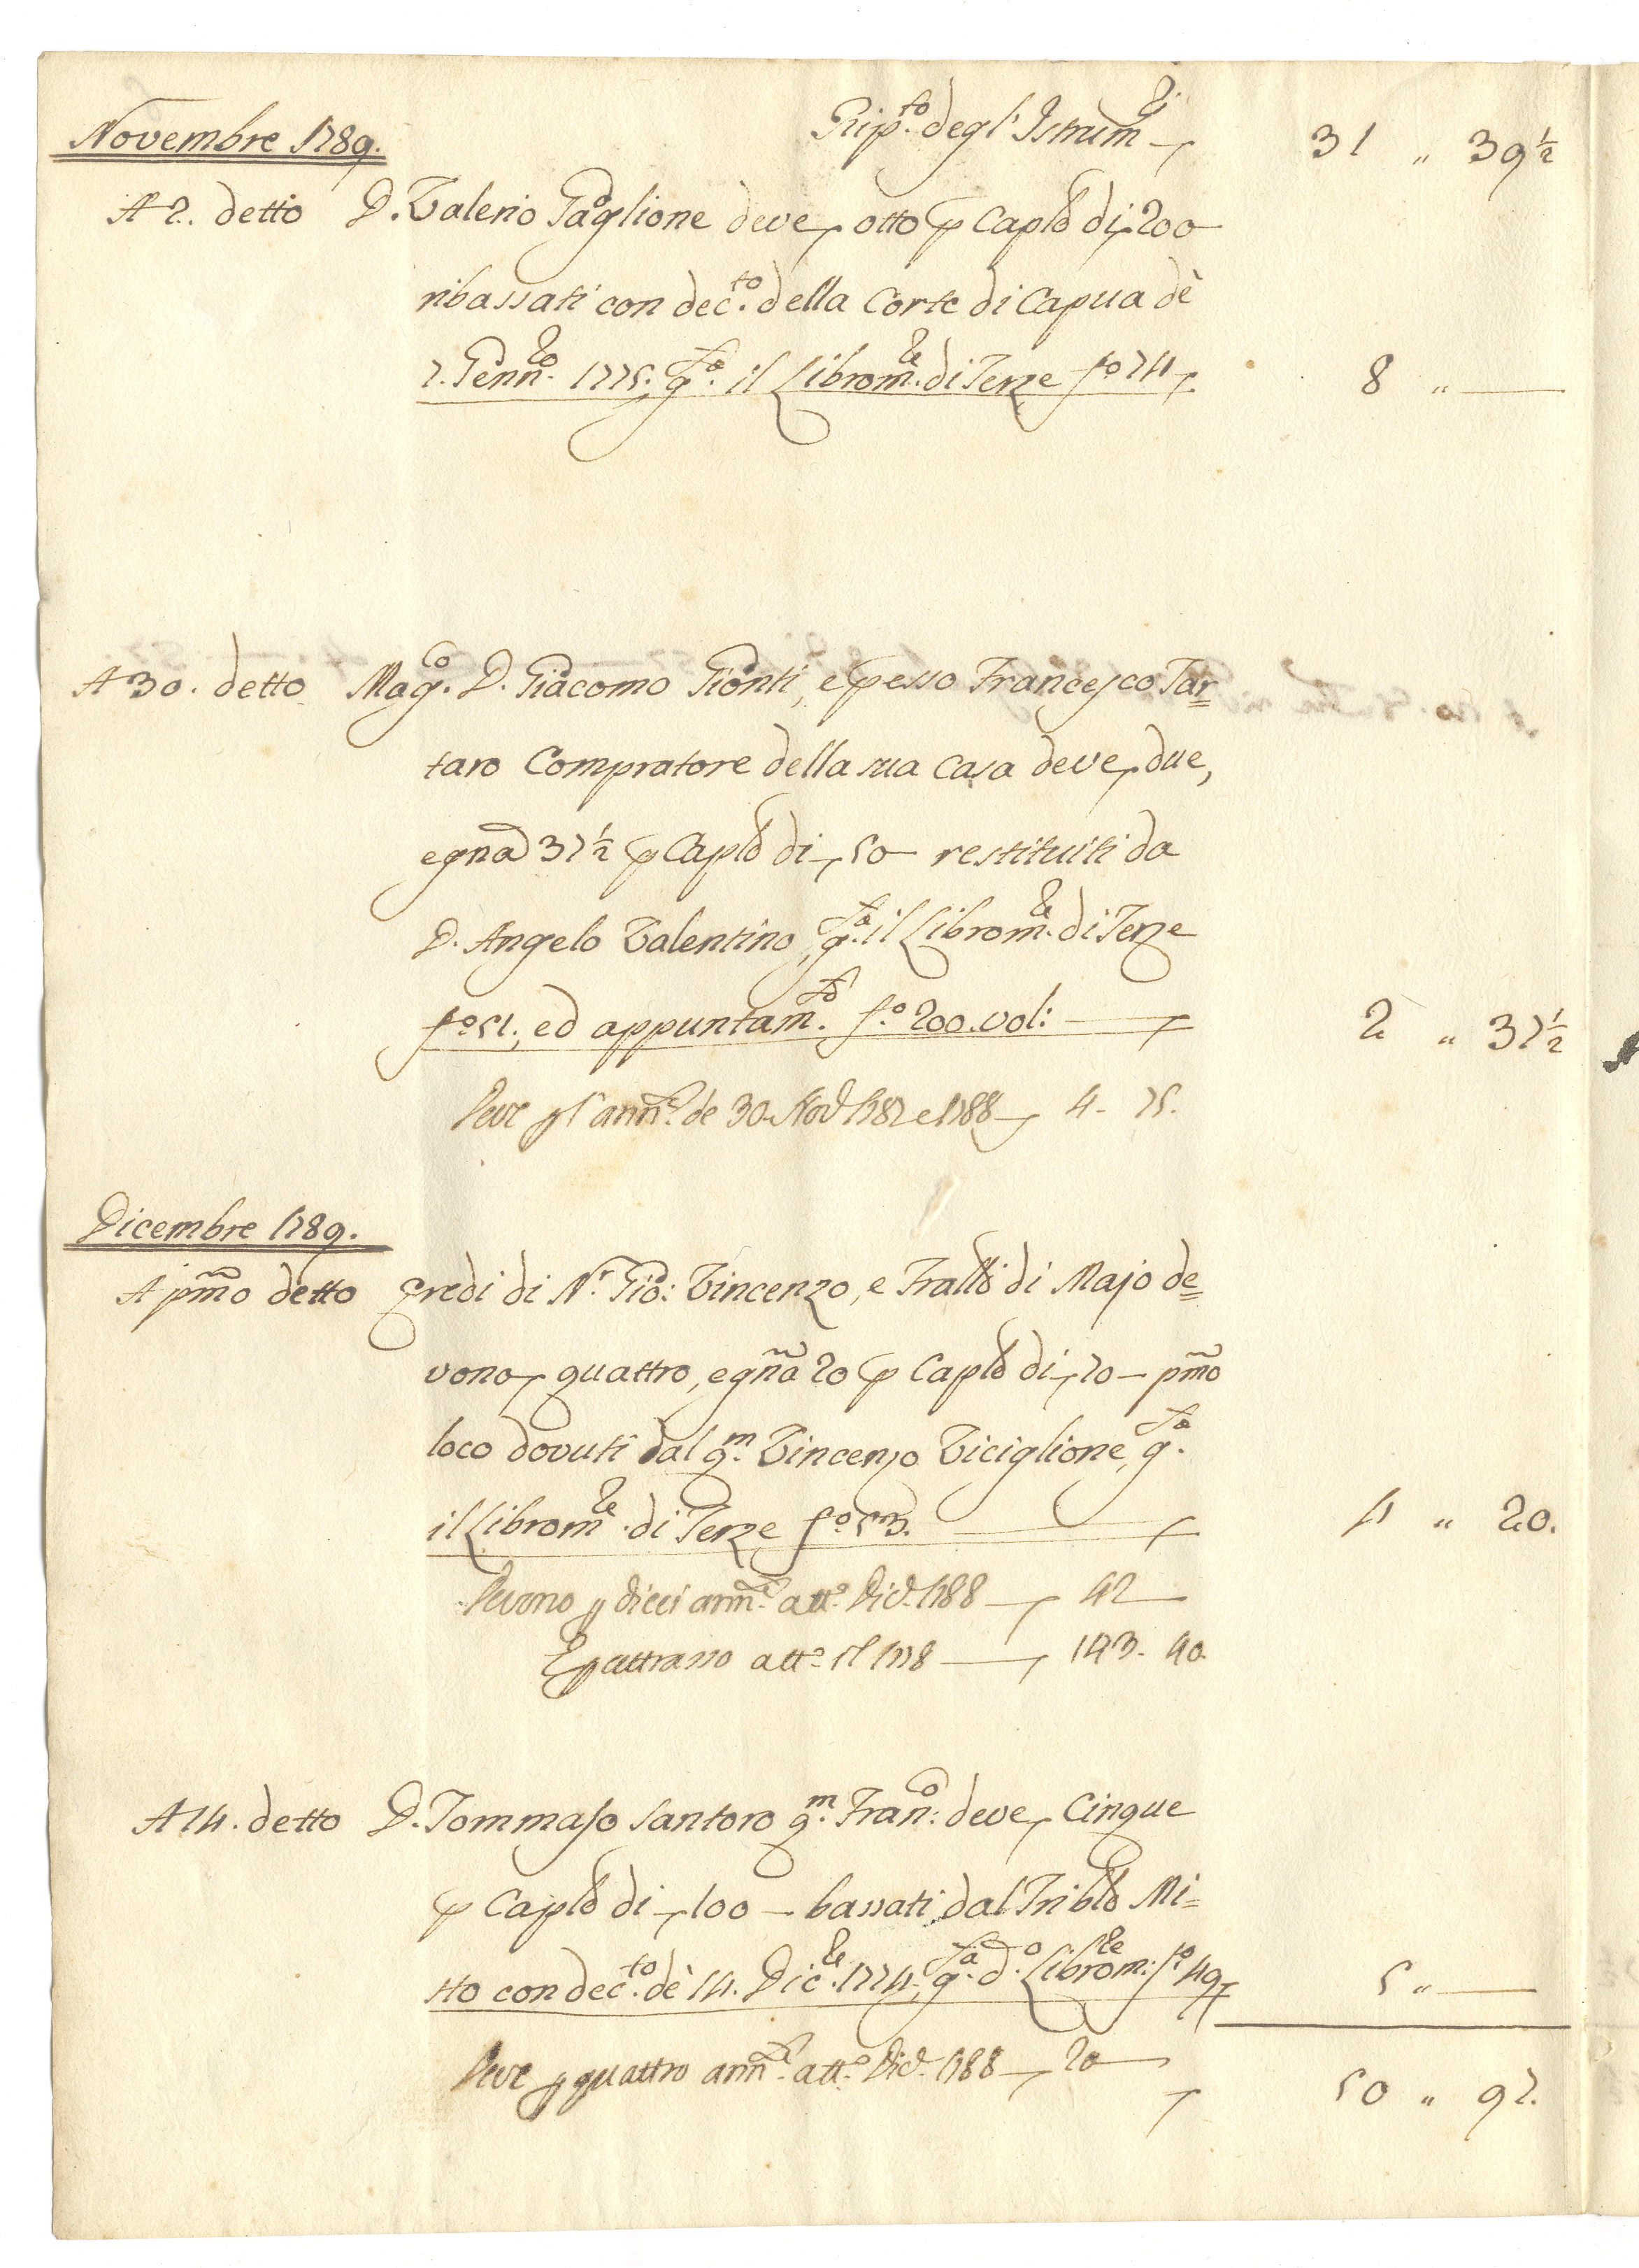 Novembre 1789. Rip.to degl' Istrum.ti 31 " 39 1/2
A 2. detto D. Valerio Paglione deve otto p Caplĕ di 200
ribassati con dec.to della Corte di Capua dè
7. Genn.ro 1775. q.sta il Librom.re di Terze f.o 74 8 " —
A 30. detto Mag.co D. Giacomo Gionti, e p esso Francesco Tar=
taro Compratore della sua Casa deve due,
e gna 37 1/2 p Caplĕ di 50 — restituiti da
D. Angelo Valentino, q.sta il Librom.re di Terze
f.o 51., ed appuntam.to f.o 200. vol: — 2 " 37 1/2
Deve p l'ann.te de 30. Nov.e 1787 e 1788 4 - 75.
Dicembre 1789.
A pmo detto Eredi di N.r Gio: Vincenzo, e Frallĭ di Majo de=
vono quattro, e gna 20 p Caplĕ di 70 — pmo
loco dovuti dal q.m Vincenzo Viciglione, q.sta
il Librom.re di Terze f.o 53. — 4 " 20.
Devono p dieci ann.te att.o Dic.e 1788 — 42 —
E p attrasso att.o il 1778 — 143. 40.
A 14. detto D. Tommaso Santoro q.m Fran.co: deve Cinque
p Caplĕ di 100 — bassati dal Triblĕ Mi=
sto con dec.to dè 14. Dic.re 1774, q.sta d.o Librom.re: f.o 49 5 " —
Deve p quattro ann.te att.o Dic.e 1788 — 20 —
50 " 97.